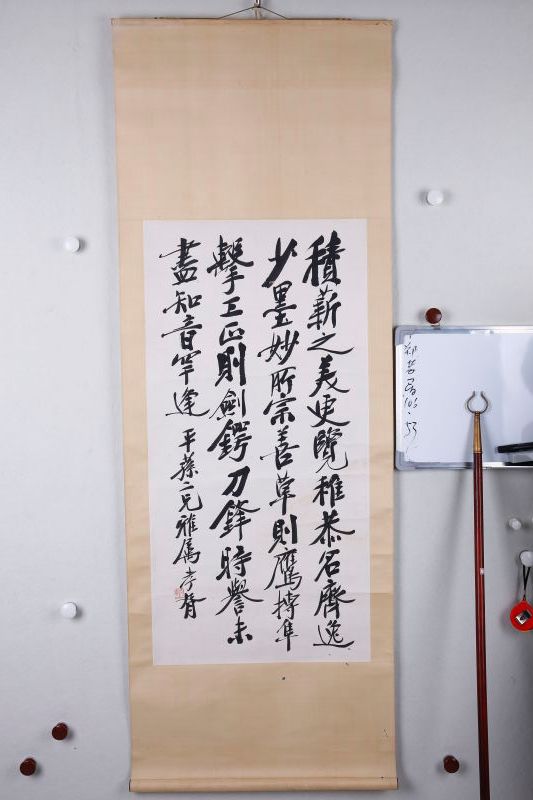 積薪之美更覽稚恭名齊逸
少墨妙所宗善草則鷹搏隼
擊工正則劍鍔刀鋒時譽未
盡知音罕逢
平蓀二兄雅属 孝胥